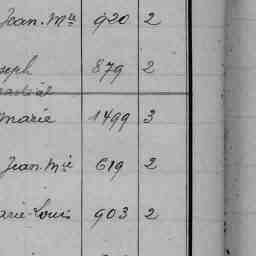 Jean. Mie 920 2
seph 879 2
marie 1499 3
Jean. Mie 619 2
arie-Louis 903 2